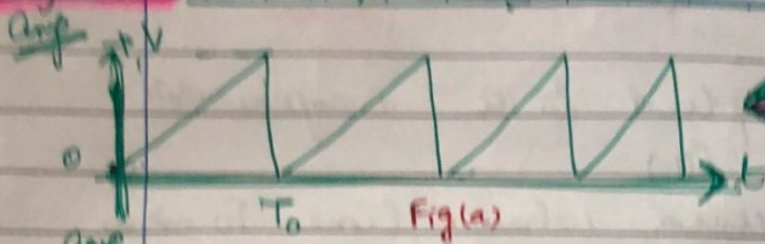 Amp
+,V
0
t
T₀
Fig(a)